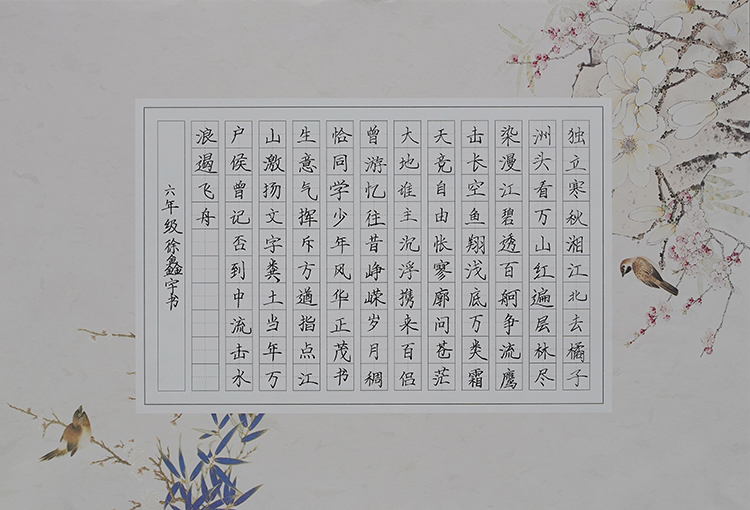 独立寒秋湘江北去橘子
洲头看万山红遍层林尽
染漫江碧透百舸争流鹰
击长空鱼翔浅底万类霜
天竞自由怅寥廓问苍茫
大地谁主沉浮携来百侣
曾游忆往昔峥嵘岁月稠
恰同学少年风华正茂书
生意气挥斥方遒指点江
山激扬文字粪土当年万
户侯曾记否到中流击水
浪遏飞舟
六年级徐宇书